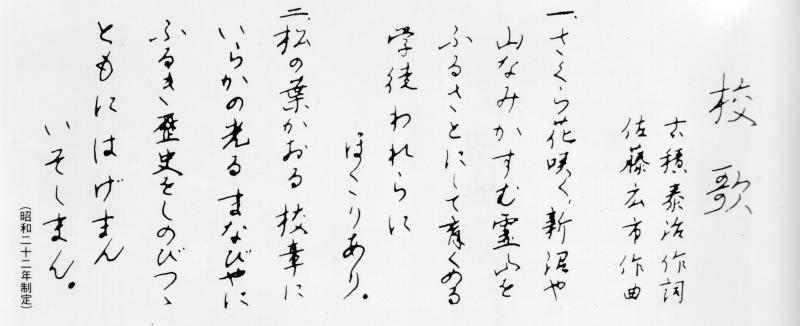 校歌
古積泰治作詞
佐藤広市作曲
一、さくら花咲く、新沼や
山なみかすむ霊山を
ふるさとにして育くめる
学徒われらに
ほこりあり。
二、松の葉かおる校章に
いらかの光るまなびやに
ふるき歴史をしのびつゝ
ともにはげまん
いそしまん。
(昭和二十二年制定)